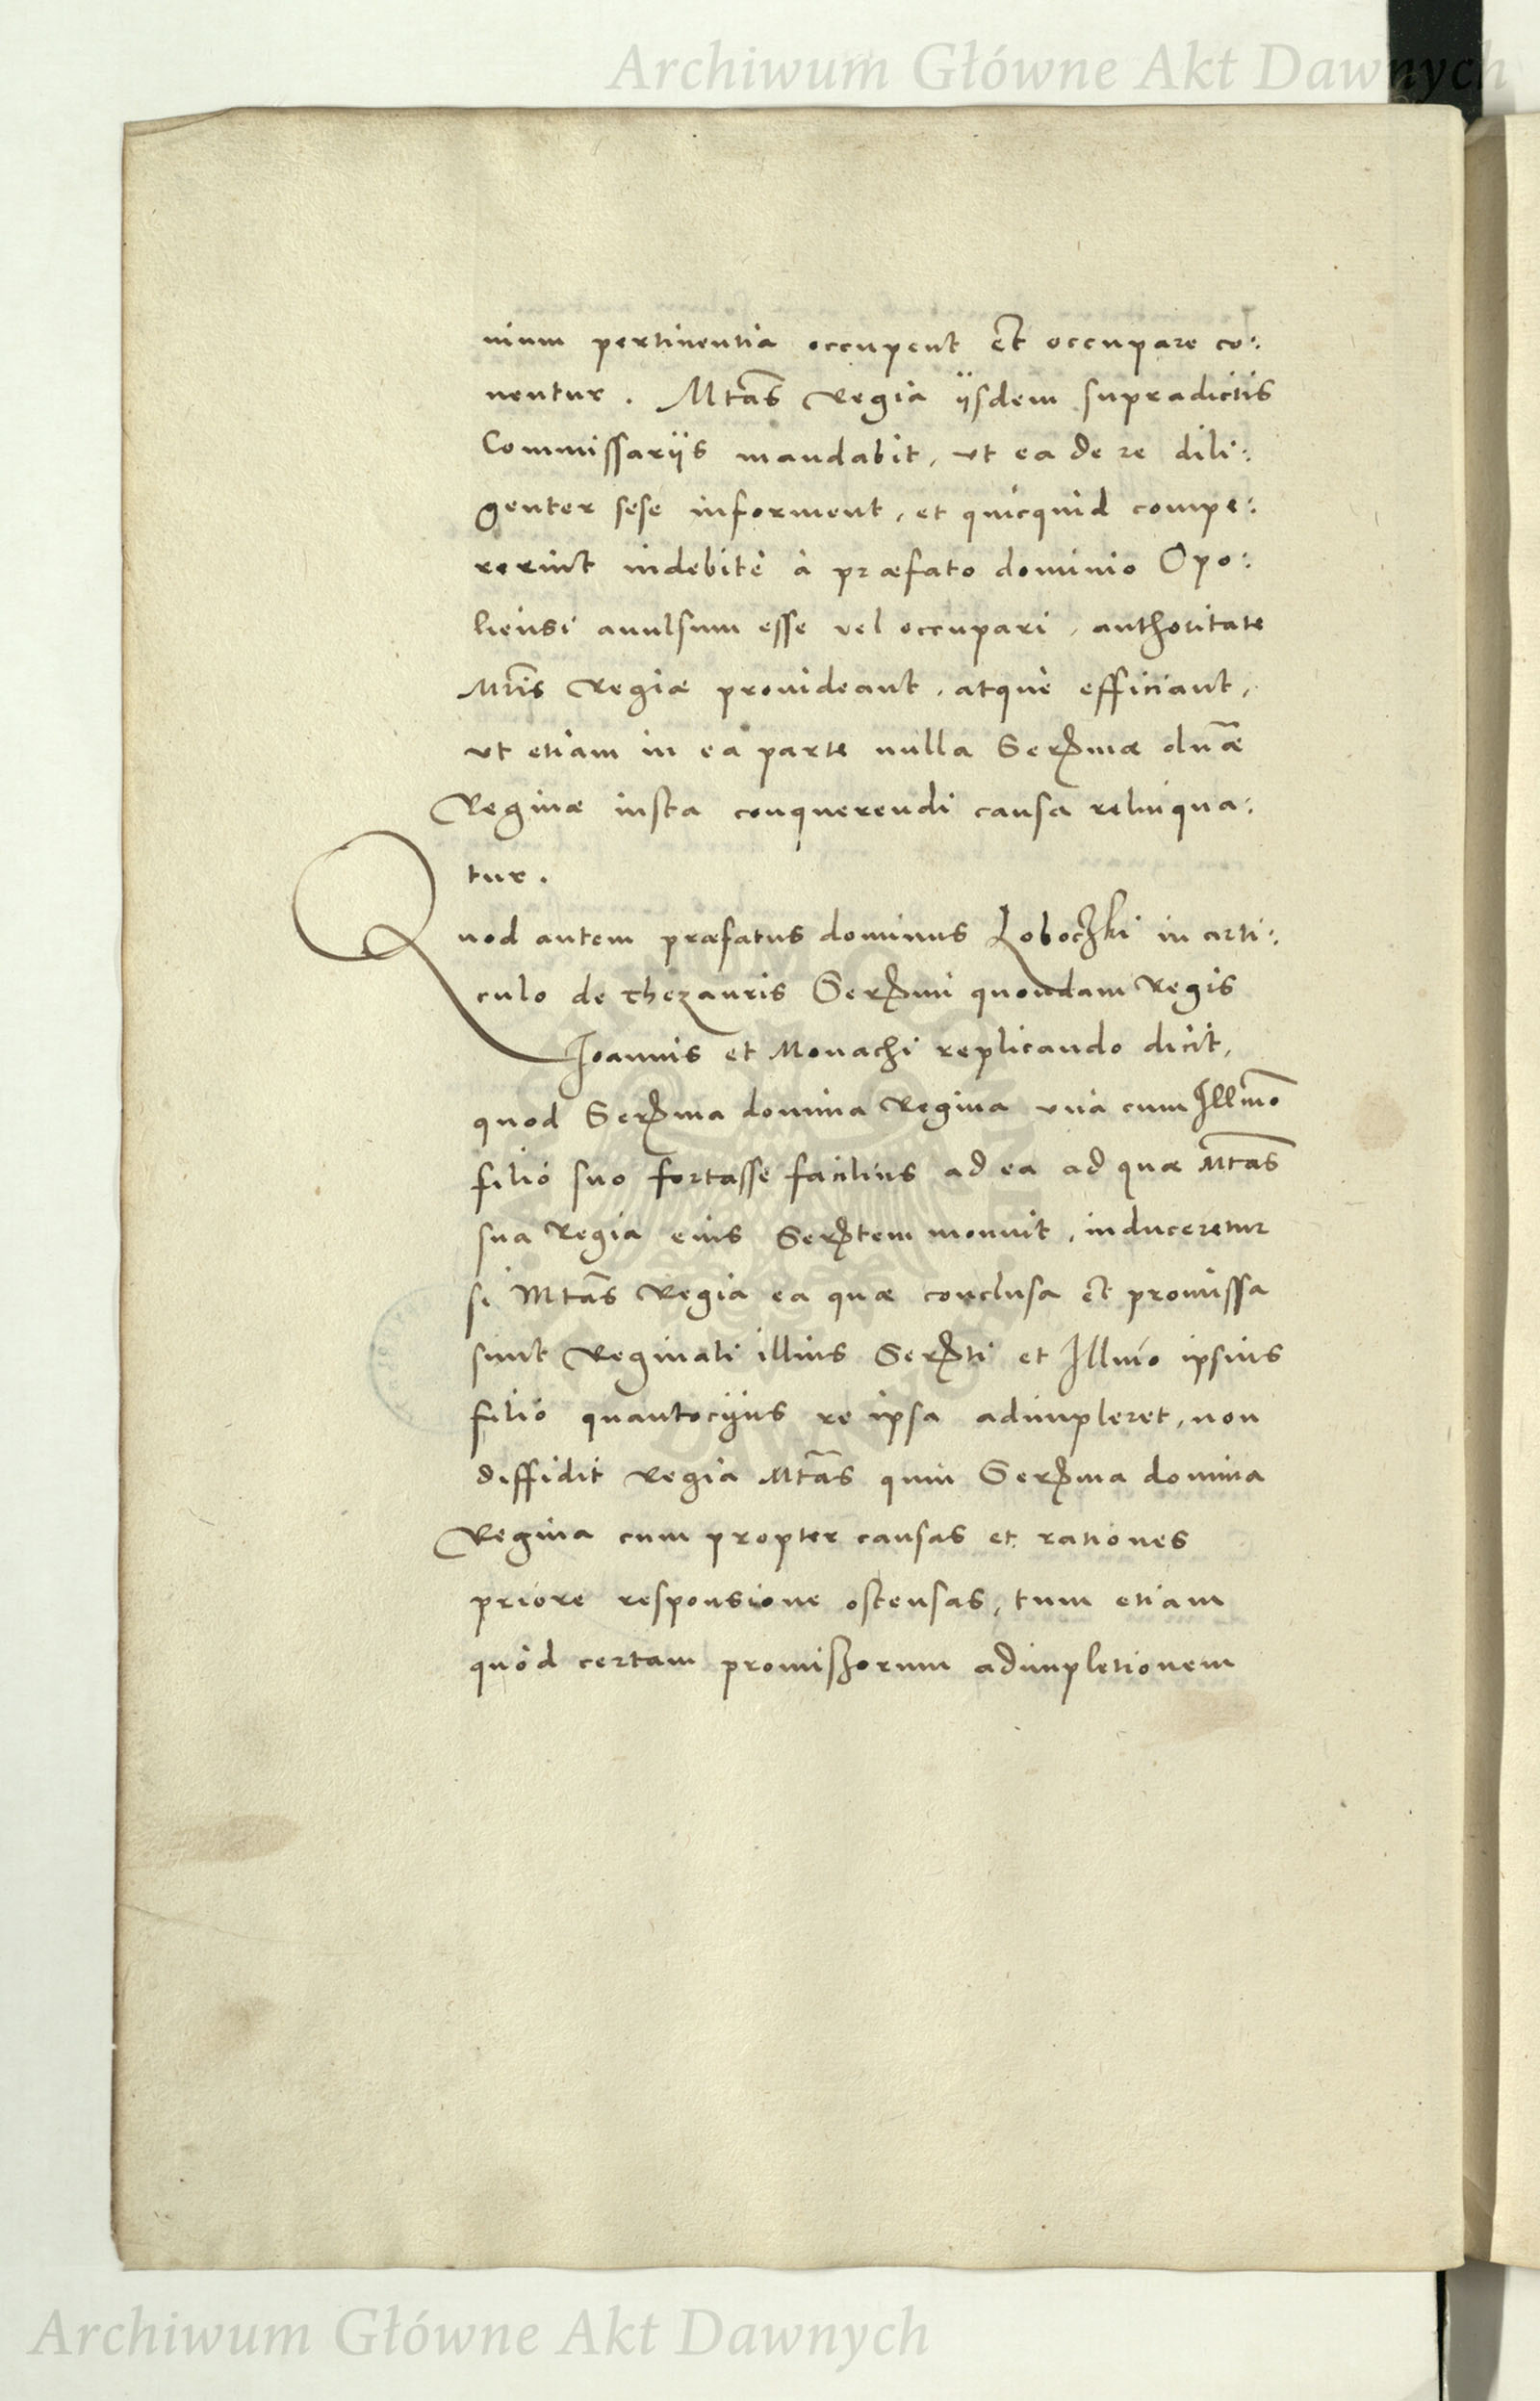 Archiwum Główne Akt Dawnych
nium pertinentia occupent et occupare co:
nentur. Mtas Regia ijsdem supradictis
Commissarijs mandabit, ut ea de re dili:
genter sese informent, et quicquid compe:
rerint indebitè à præfato dominio Opo:
liensi auulsum esse vel occupari, authoritate
Mtis Regiæ prouideant, atque efficiant,
ut etiam in ea parte nulla Sermæ dnæ
Reginæ iusta conquerendi causa relinqua:
tur.
Quod autem præfatus dominus Loboczki in arti:
culo de thezauris Sermi quondam Regis
Ioannis et Monachi replicando dicit,
quod Serma domina Regina unà cum Illmo
filio suo fortasse facilius ad ea ad quæ Mtas
sua Regia eius Sertem monuit, induceretur
si Mtas Regia ea quæ conclusa et promissa
sunt Reginali illius Serti et Illmo ipsius
filio quantocijus re ipsa adimpleret, non
diffidit Regia Mtas quin Serma domina
Regina cum propter causas et rationes
priore responsione ostensas, tum etiam
quòd certam promissorum adimpletionem
Archiwum Główne Akt Dawnych